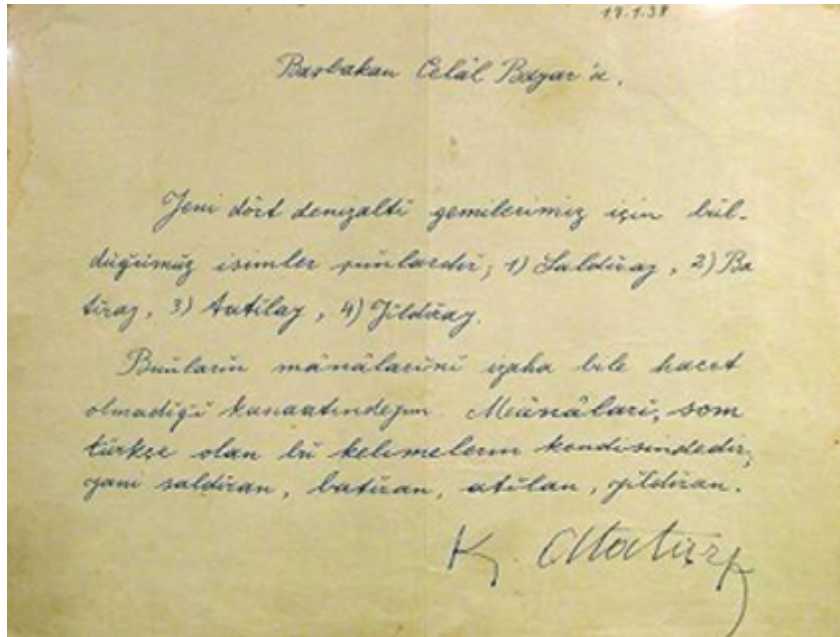 17.1.38
Başbakan Celâl Bayar'a,
Yeni dört denizaltı gemilerimiz için bul-
duğumuz isimler şunlardır; 1) Saldıray, 2) Ba
tıray, 3) Atılay, 4) Yıldıray.
Bunların mânâlarını izaha bile hacet
olmadığı kanaatındayım. Mânâları, som
türkçe olan bu kelimelerin kendisindedir,
yani saldıran, batıran, atılan, yıldıran.
K. Atatürk